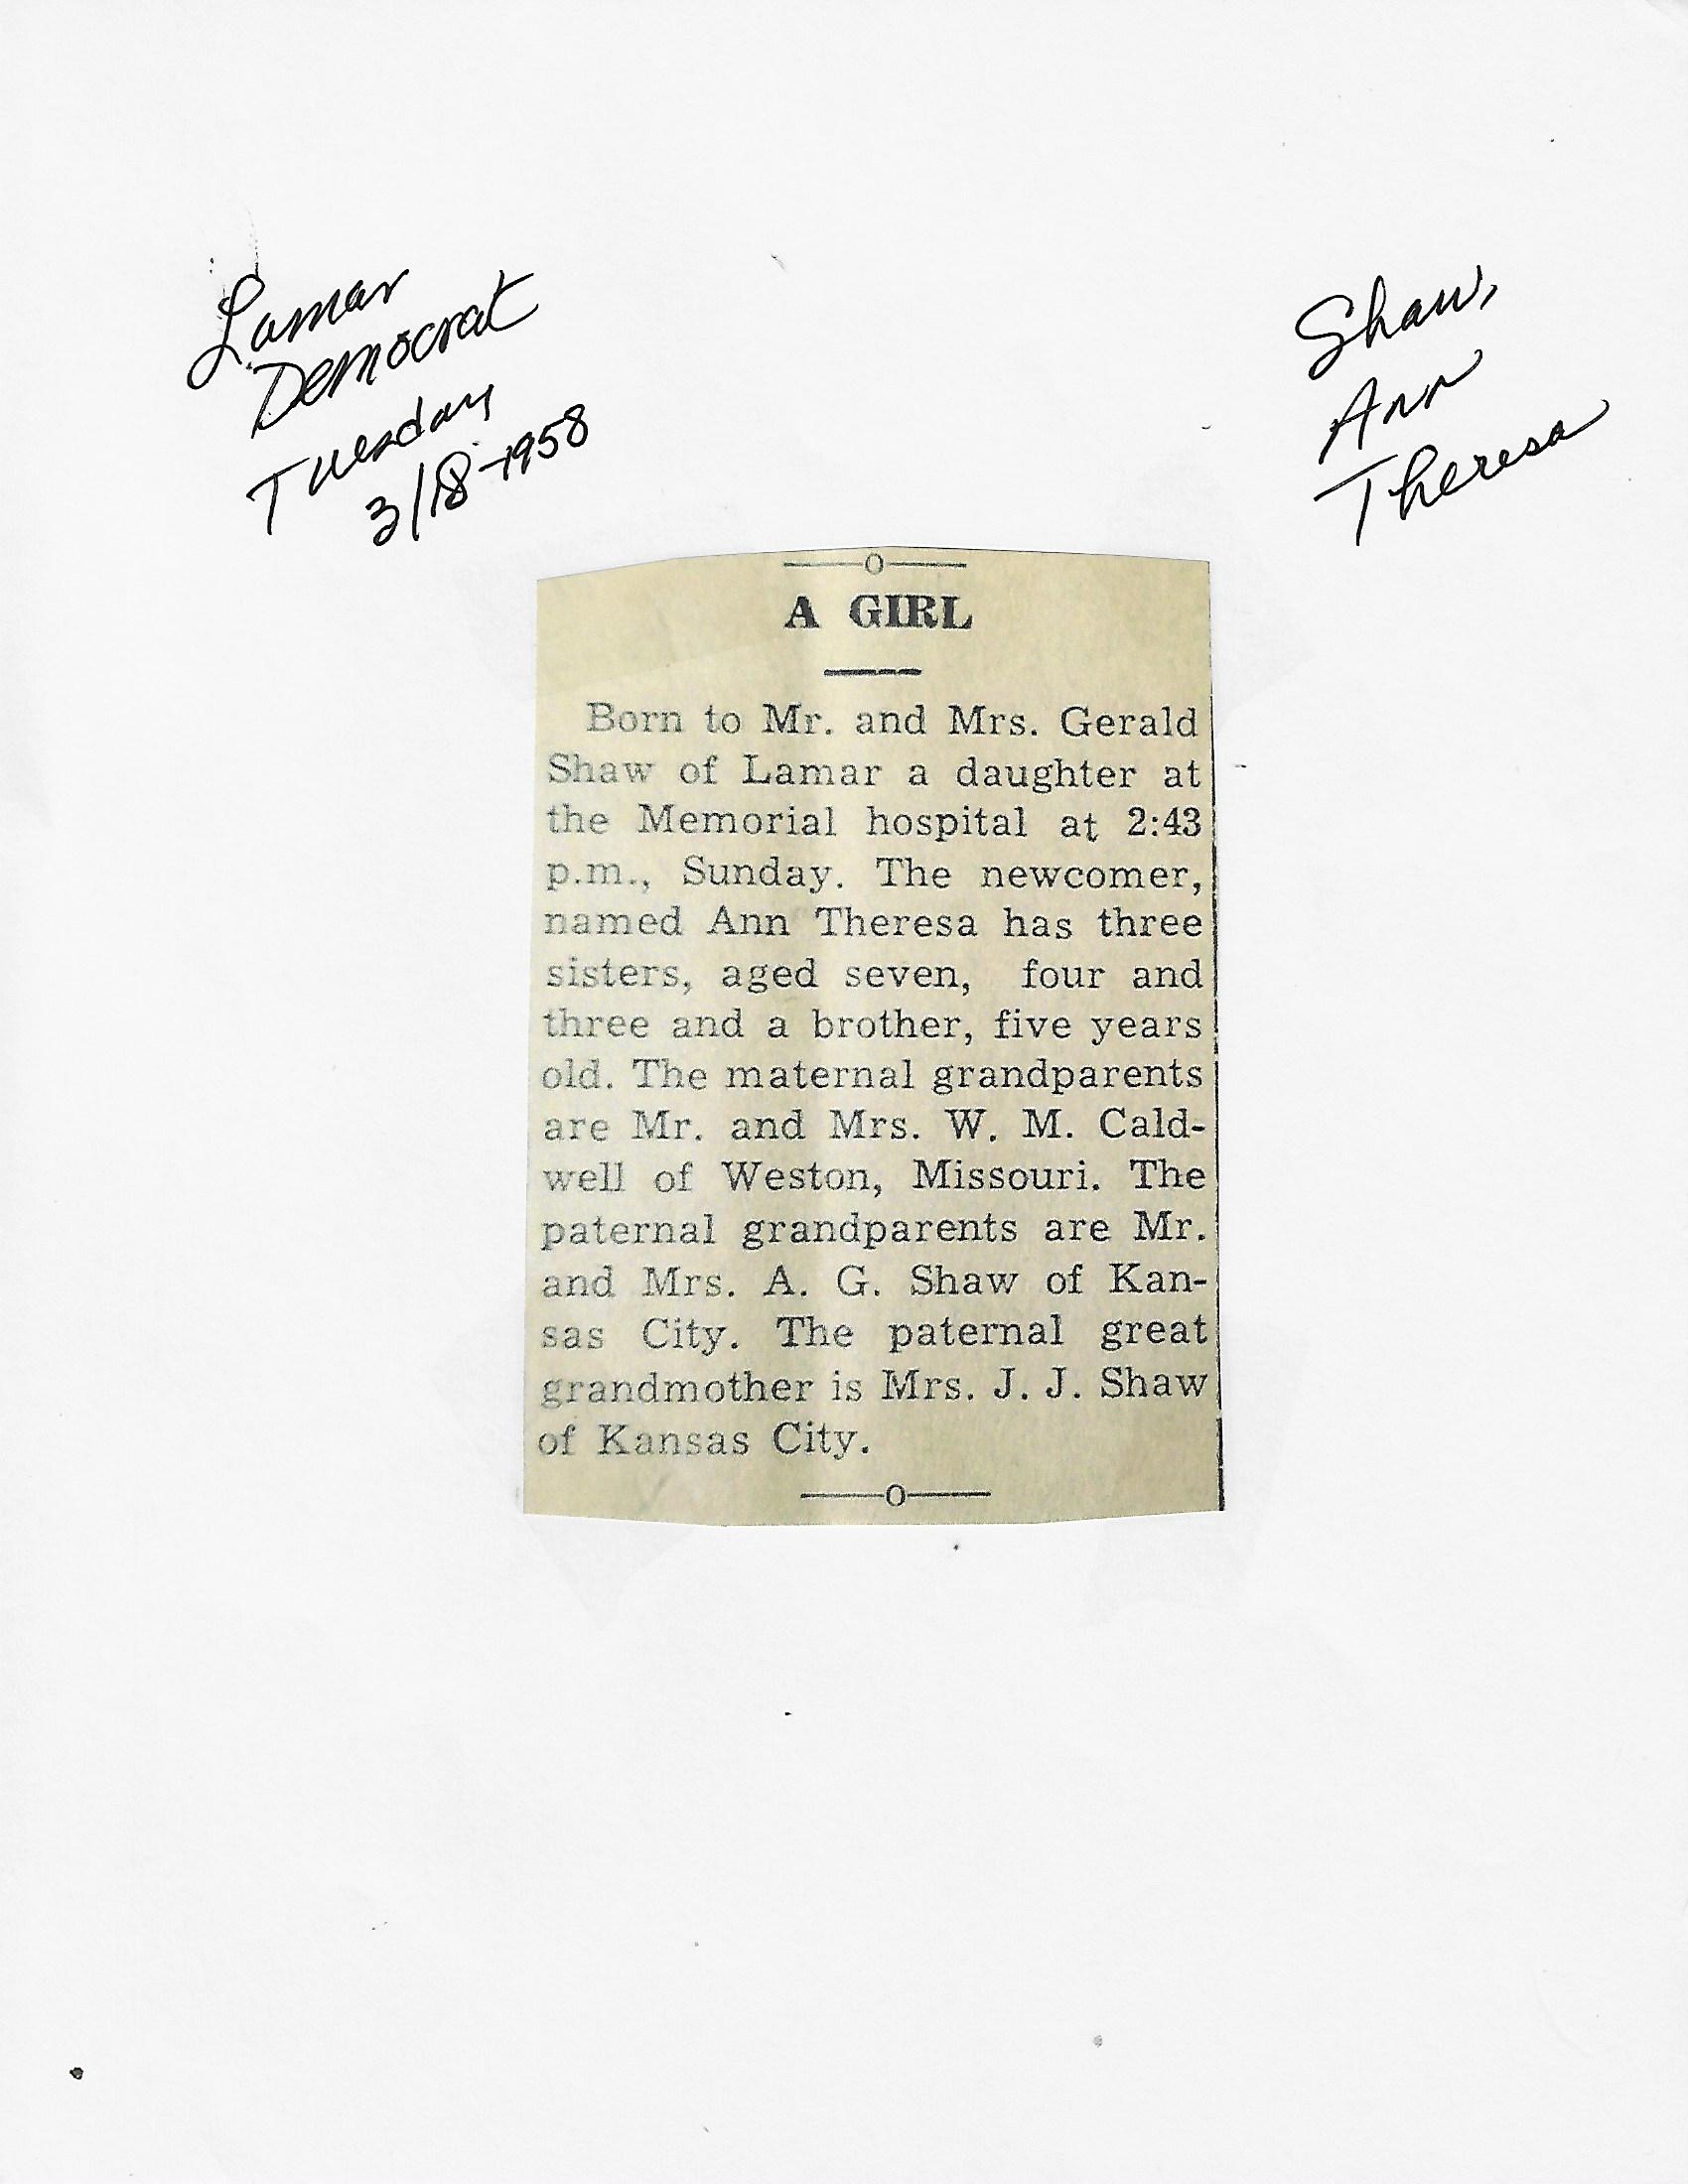 Lamar
Democrat
Tuesday
3/18-1958
Shaw,
Ann
Theresa
A GIRL
Born to Mr. and Mrs. Gerald
Shaw of Lamar a daughter at
the Memorial hospital at 2:43
p.m., Sunday. The newcomer,
named Ann Theresa has three
sisters, aged seven, four and
three and a brother, five years
old. The maternal grandparents
are Mr. and Mrs. W. M. Cald-
well of Weston, Missouri. The
paternal grandparents are Mr.
and Mrs. A. G. Shaw of Kan-
sas City. The paternal great
grandmother is Mrs. J. J. Shaw
of Kansas City.